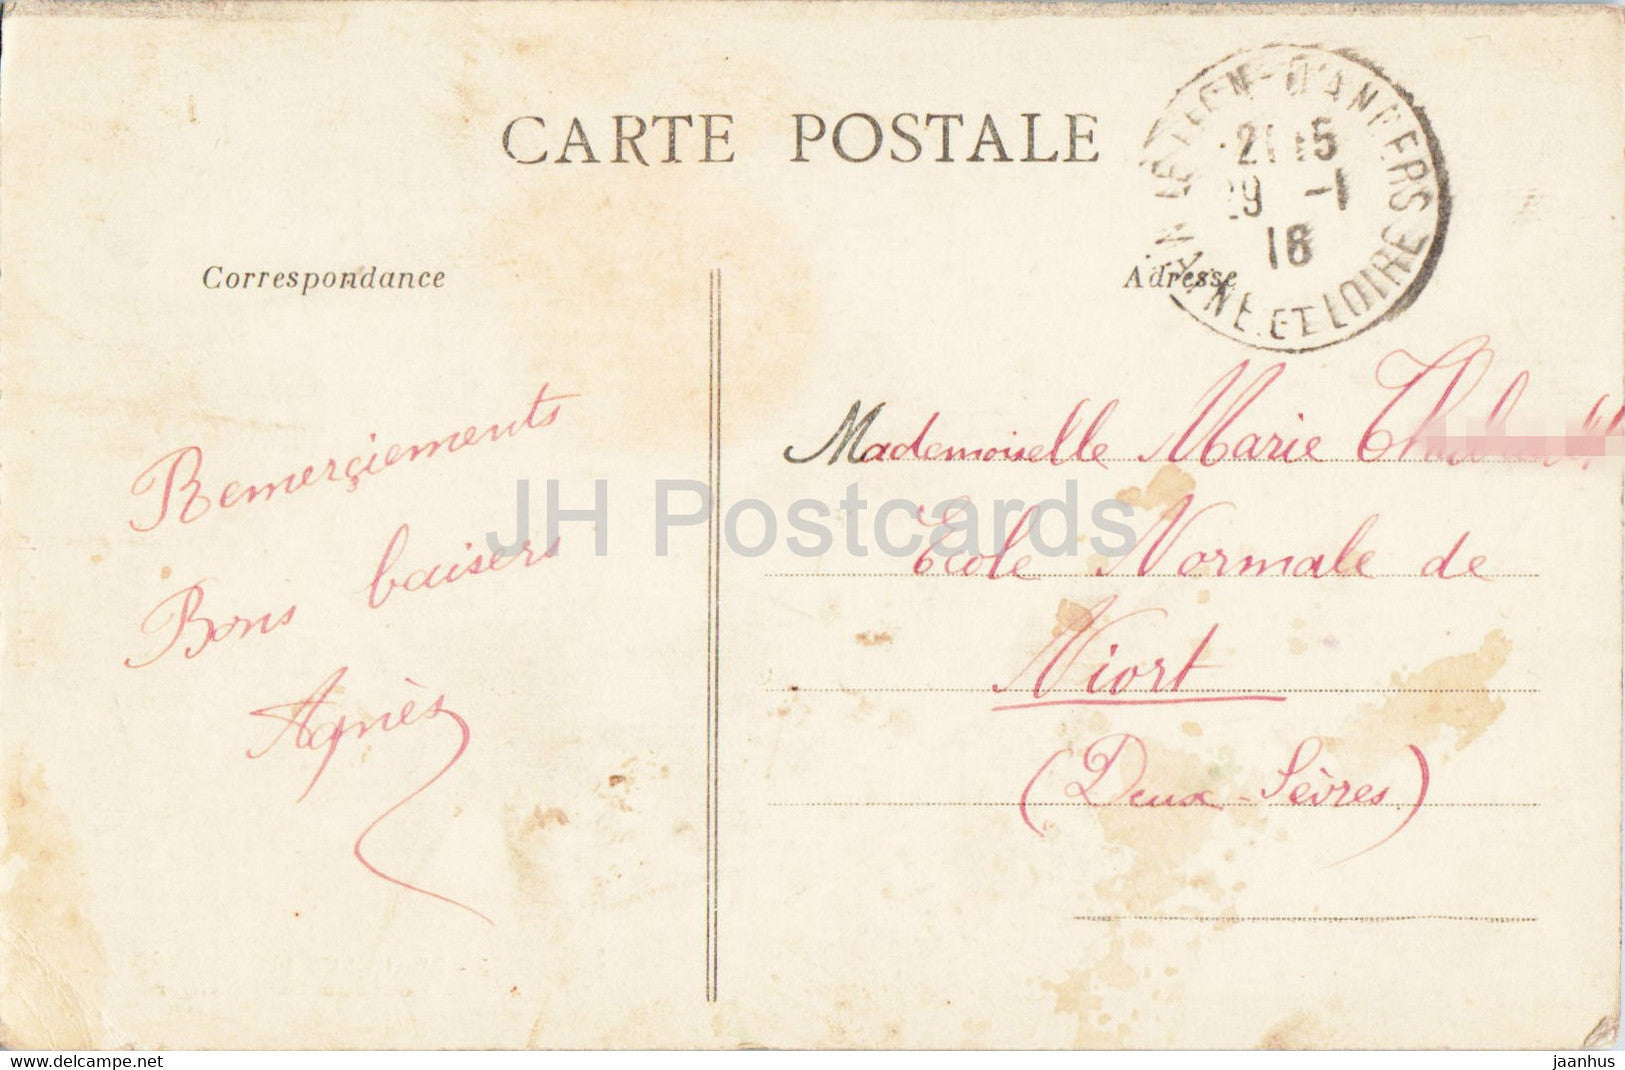 CARTE POSTALE
LE LION-D'ANGERS
21 15
29 -1
18
MAINE-ET-LOIRE
Correspondance
Adresse
Remerçiements
Bons baisers
Agnès
Mademoiselle Marie
Ecole Normale de
Niort
(Deux-Sèvres)
JH Postcards
www.delcampe.net
jaanhus